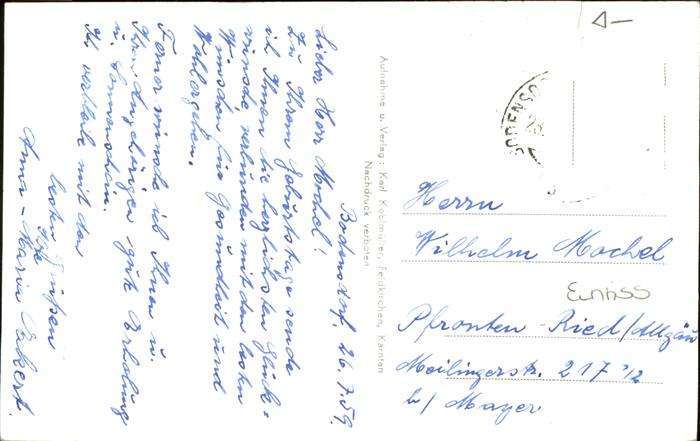 Bodensdorf, 26.7.59.
Lieber Herr Mochel!
Zu Ihrem Geburtstage sende
ich Ihnen die herzlichsten Glück-
wünsche, verbunden mit den besten
Wünschen für Gesundheit und
Wohlergehen.
Ferner wünsche ich Ihnen u.
Ihren Angehörigen gute Erholung
u. Sonnenschein.
Ich verbleibe mit den
besten Grüßen
Ihre
Anna-Maria Eckert.
Aufnahme u. Verlag: Karl Kollmitzer, Feldkirchen, Kärnten
Nachdruck verboten
BODENSDO
Herrn
Wilhelm Mochel
Einriss
Pfronten-Ried/Allgäu
Meilingerstr. 217 1/2
b/ Mayer